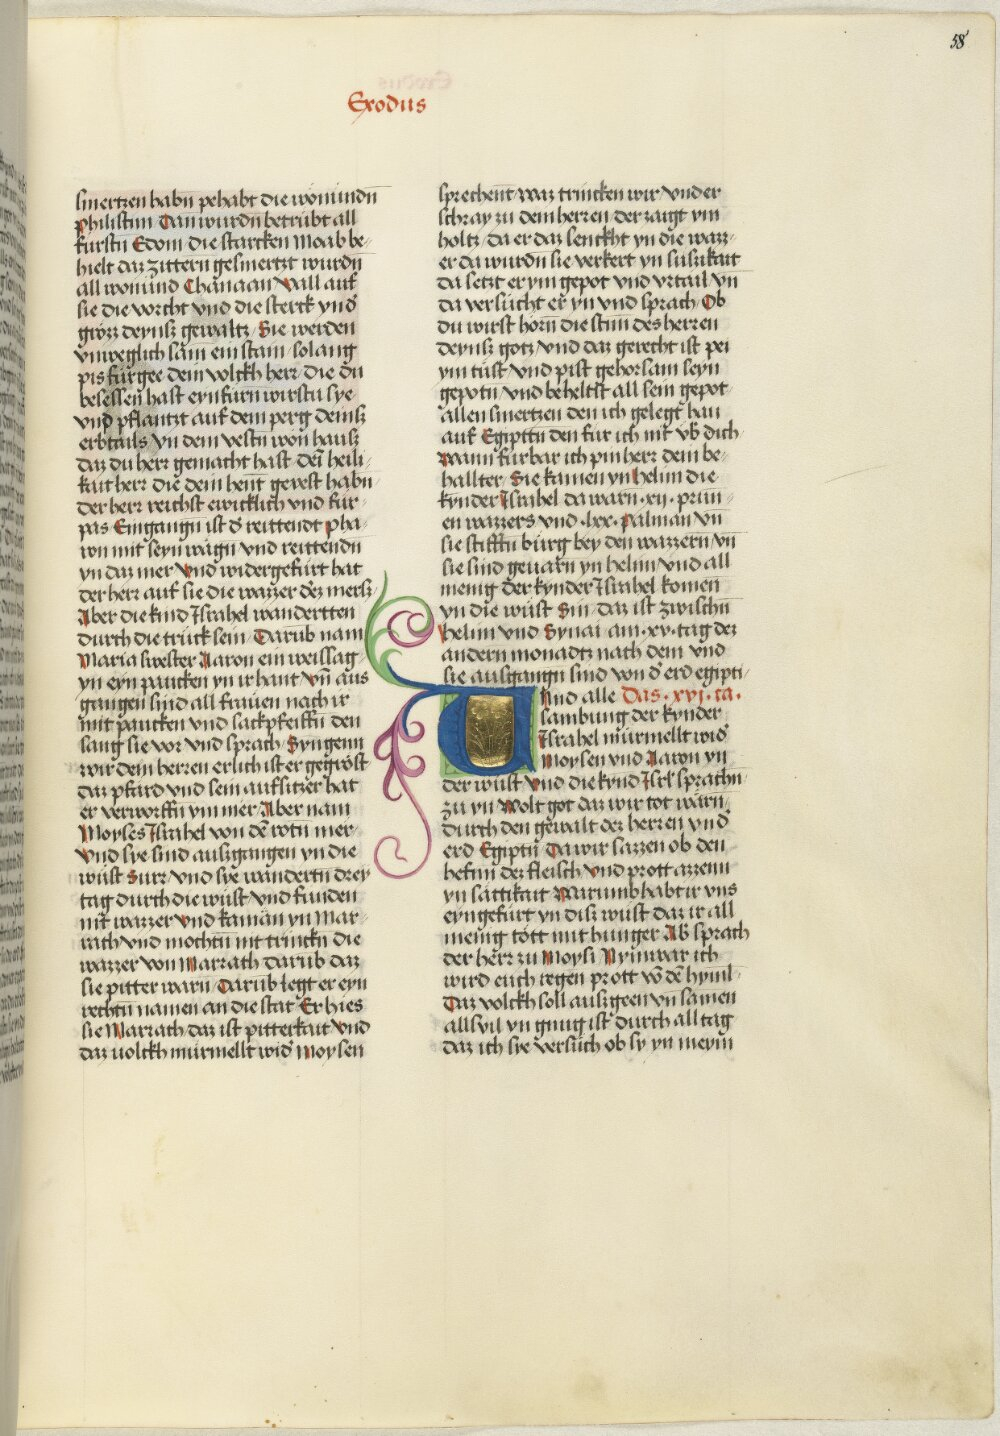 58
Exodus
smertzen habn pehabt die wonundn
philistim Dan wurdn betrubt all
furstn Edom die starcken Moab be-
hielt daz zittern gesmertzt wurdn
all wonund Chanaan Vall auf
sie die vorcht vnd die sterck vnd
grözz deynß gewaltz Sie werden
vnweglich sam ein stain solang
pis fürgee dem volckh herr die du
besessen hast eynfurn wirstu sye
vnd pflantzt auf dem perg deinß
erbtails yn dem vestn won hauß
daz du herr gemacht hast dein heili-
kait herr die dem hent gevest habn
der herr reichst ewicklich vnd fur-
pas Eingangn ist der reittendt pha-
ron mit seyn wägn vnd reittendn
yn daz mer Vnd widergefurt hat
der herr auf sie die wazzer dez mersz
Aber die kind Israhel wandertten
durch die trück sein Darub nam
Maria swester Aaron ein weissag
yn eyn paucken yn ir hant vn aus
gangen sind all frauen nach ir
mit paucken vnd sackpfeiffn den
sang sie vor vnd sprach Syngenn
wir dem herzen erlich ist er gegröst
daz pfard vnd sein aufsitzer hat
er verworffn ynn mer Aber nam
Moyses Israhel von de rotn mer
Vnd sye sind auszgangen yn die
wüst Surr vnd sye wandertn drey
tag durch die wüst vnd funden
nit wazzer vnd kaman yn Mar-
rath vnd mochtn nit trinckn die
wazzer von Marrath darub daz
sie pitter warn Darub legt er eyn
rechtn namen an die stat Er hies
sie Marrath daz ist pitterkait Vnd
daz uolckh murmellt wid Moysen
sprechent waz trincken wir vnd er
schray zu dem herzen der zaigt ym
holtz da er daz senckht yn die wazz-
er da wurdn sie verkert yn susikait
da setzt er ym gepot vnd vrtail vn
da versucht er yn vnd sprach Ob
du wirst horn die stim des herren
deynß gotz vnd daz gerecht ist pei
ym tust vnd pist gehorsam seyn
gepotn vnd beheltst all sein gepot
allen smertzen den ich gelegt han
auf Egiptn den fur ich nit vb dich
Wann furbar ich pin herz dem be-
hallter Sie kamen yn helim die
kynder Israhel da warn xij prun-
en wazzers vnd lxx palman vn
sie stifftn burg bey den wazzern vn
sie sind geuarn yn helim vnd all
menig der kynder Israhel komen
yn die wüst Sin daz ist zwischn
helim vnd Synai am xv tag dez
andern monadtz nach dem vnd
sie auszgangn sind von d erd egipti
Und alle Das xvj ca.
sambung der kynder
Israhel mürmellt wid
Moysen vnd Aaron yn
der wüst Vnd die kynd Isrl sprachn
zu yn Wolt got daz wir tot warn
durch den gewalt dez herzen vnd
erd Egiptn Da wir sazzen ob den
hefnn dez fleisch vnd prott azzenn
yn sattikait Warumb habt ir vns
eyngefurt yn disz wüst daz ir all
menig tött mit hunger Ab sprach
der herz zu Moysi Nymwar ich
wird euch regen prott vo de hyml
Daz volckh soll auszgeen vn samen
allsvil yn gnug ist durch all tag
daz ich sye versuch ob sy yn meym